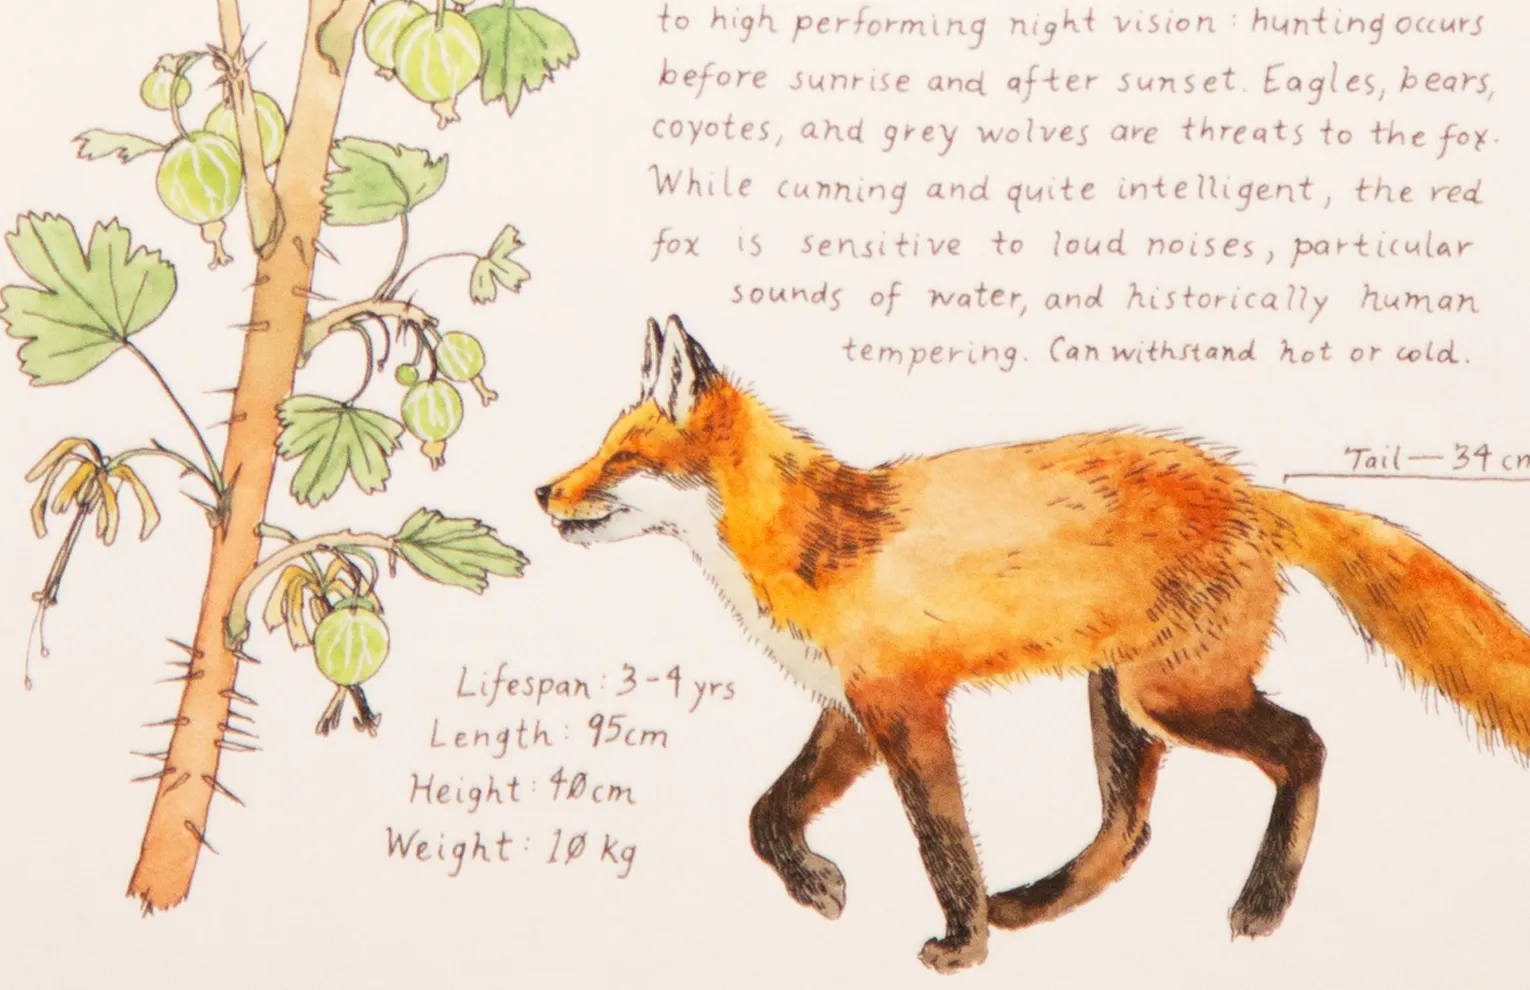 to high performing night vision : hunting occurs
before sunrise and after sunset. Eagles, bears,
coyotes, and grey wolves are threats to the fox.
While cunning and quite intelligent, the red
fox is sensitive to loud noises, particular
sounds of water, and historically human
tempering. Can withstand hot or cold.
Tail — 34 cm
Lifespan : 3-4 yrs
Length : 95cm
Height : 40cm
Weight : 10 kg